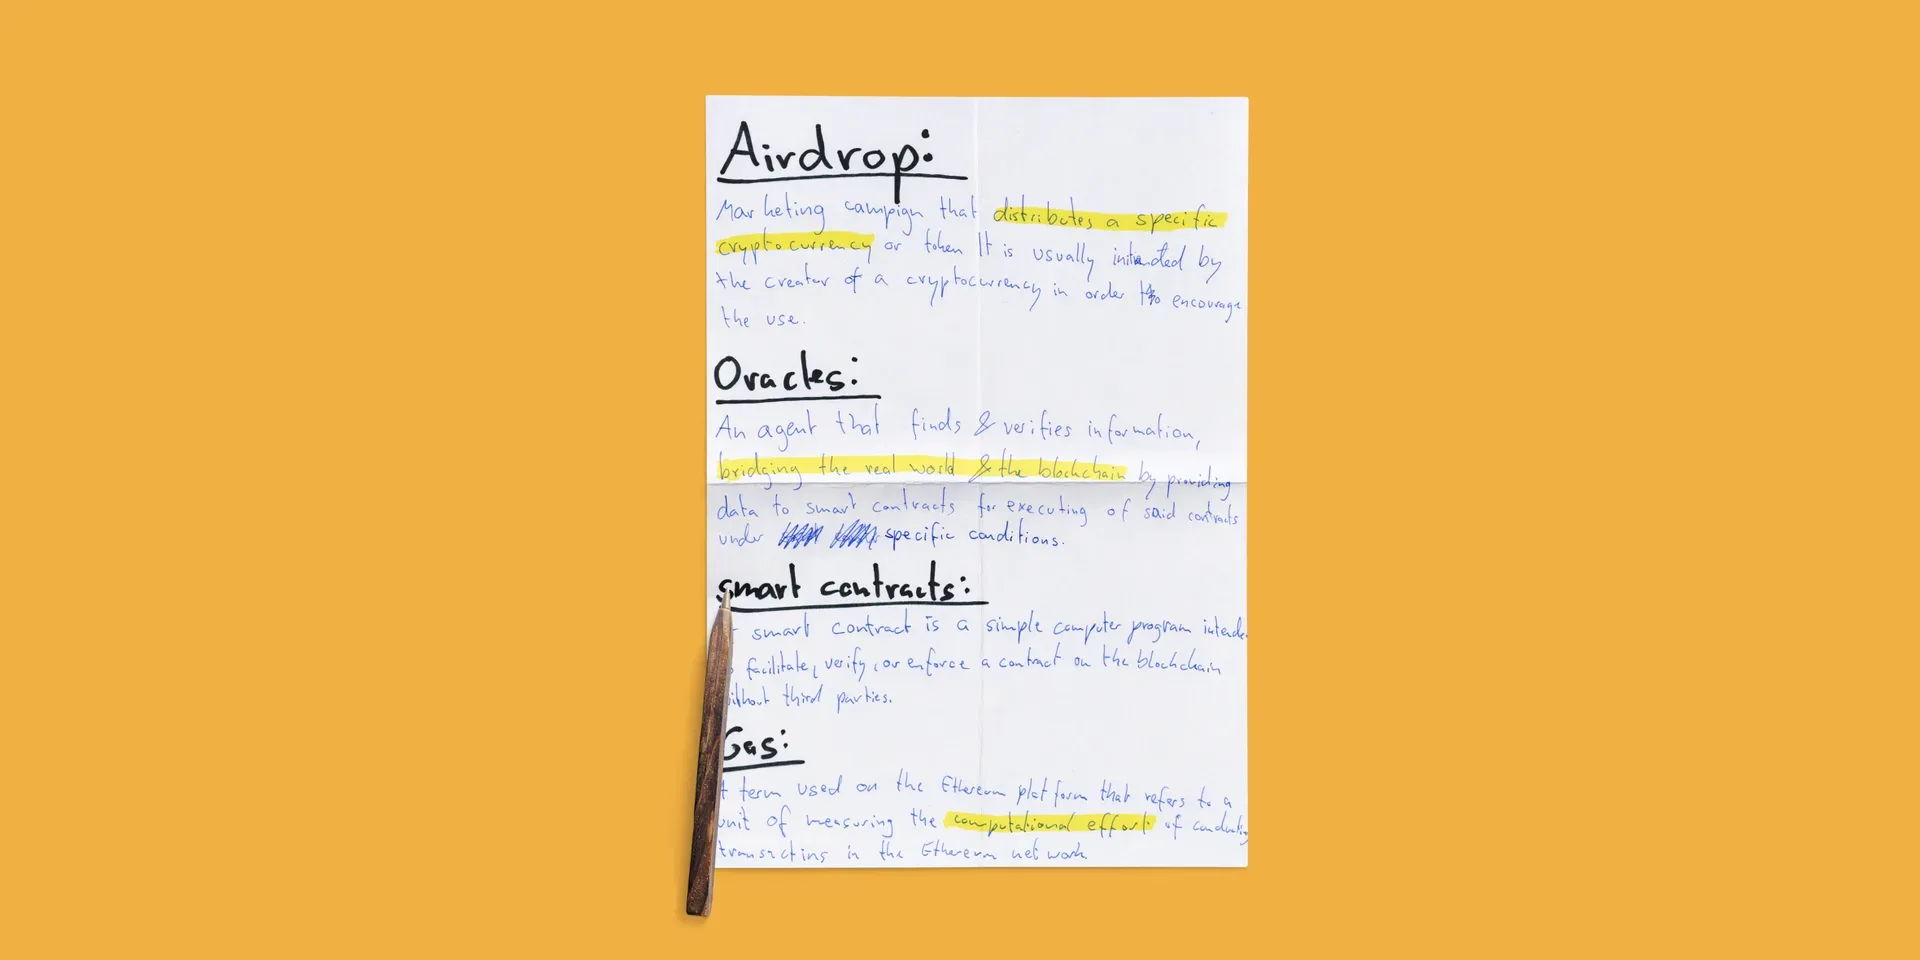 Airdrop:
Marketing campaign that distributes a specific
cryptocurrency or token It is usually intended by
the creator of a cryptocurrency in order to encourage
the use.
Oracles:
An agent that finds & verifies information,
bridging the real world & the blockchain by providing
data to smart contracts for executing of said contracts
under specific conditions.
smart contracts:
smart contract is a simple computer program intende
facilitate, verify, or enforce a contract on the blockchain
ithout third parties.
Gas:
term used on the Ethereum platform that refers to a
unit of measuring the computational effort of conducting
transactins in the Ethereum network.